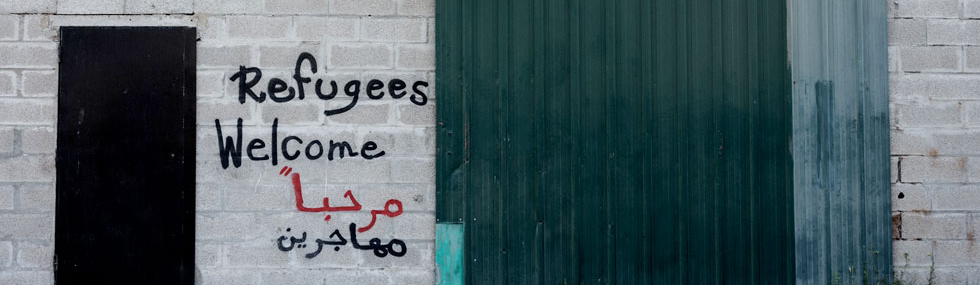 Refugees
Welcome
مرحباً
مهاجرين